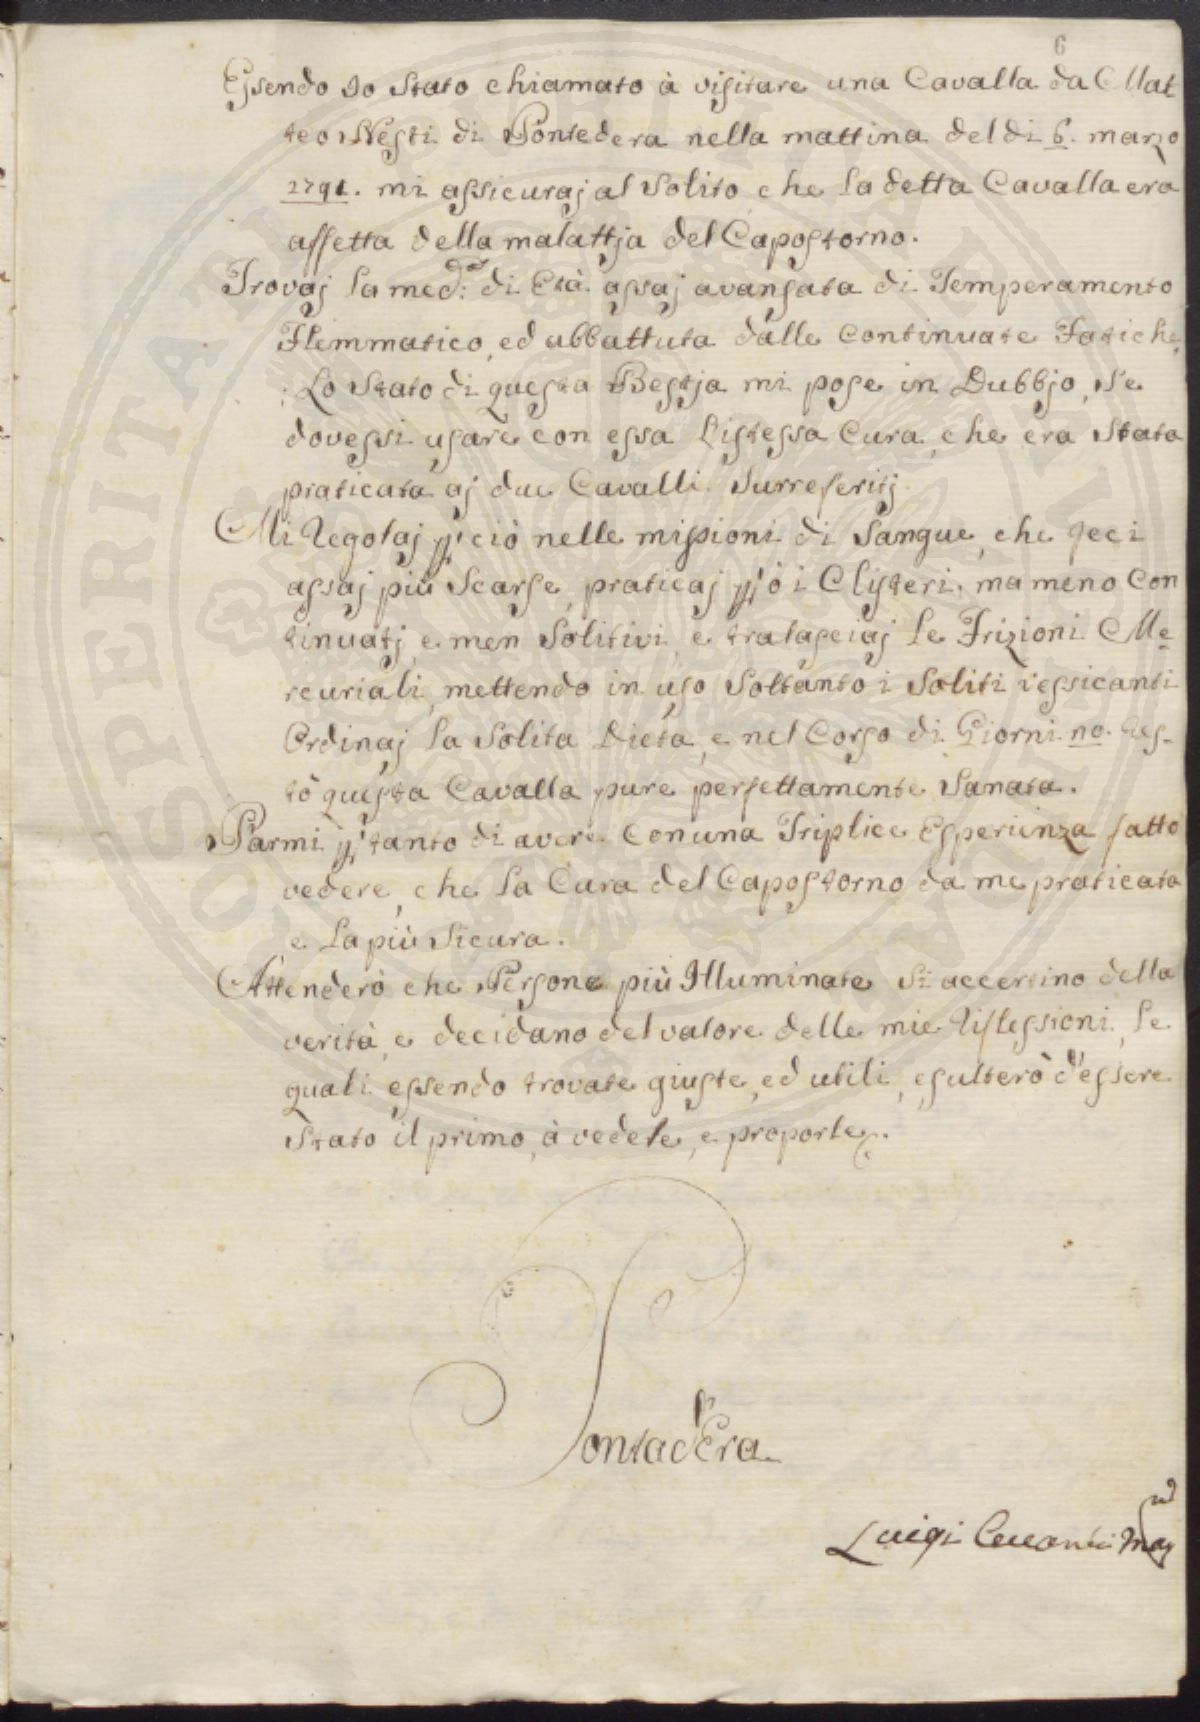 6
Essendo Io Stato chiamato à visitare una Cavalla da Mat
teo Nesti di Pontedera nella mattina del di 6. marzo
1791. mi assicuraj al Solito che la detta Cavalla era
affetta della malattja del Capostorno.
Trovaj la med:ma di Età assaj avansata di Temperamento
Flemmatico, ed abbattuta dalle continuate Fatiche,
Lo Stato di questa Bestja mi pose in Dubbjo, Se
dovessi usare con essa L'istessa Cura, che era Stata
praticata aj due Cavalli Surreferitj
Mi Regolaj p ciò nelle missioni di Sangue, che feci
assaj più Scarse, praticaj p ò i Clisteri, ma meno Con
tinuatj, e men Solitivi, e tralasciaj le Frizioni Me
rcuriali, mettendo in uso Soltanto i Soliti vessicanti
Ordinaj la Solita Dieta, e nel Corso di Giorni no. Res-
tò questa Cavalla pure perfettamente Sanata.
Parmi p tanto di avere con una Triplice Esperienza fatto
vedere, che la Cura del Capostorno da me praticata
e la più Sicura.
Attenderò che Persone più Illuminate Si accertino della
verità, e decidano del valore delle mie Riflessioni, le
quali essendo trovate giuste, ed utili, esulterò d'essere
Stato il primo, à vedele, e proporle.
Pontad'Era
Luigi
PROSPERITATI